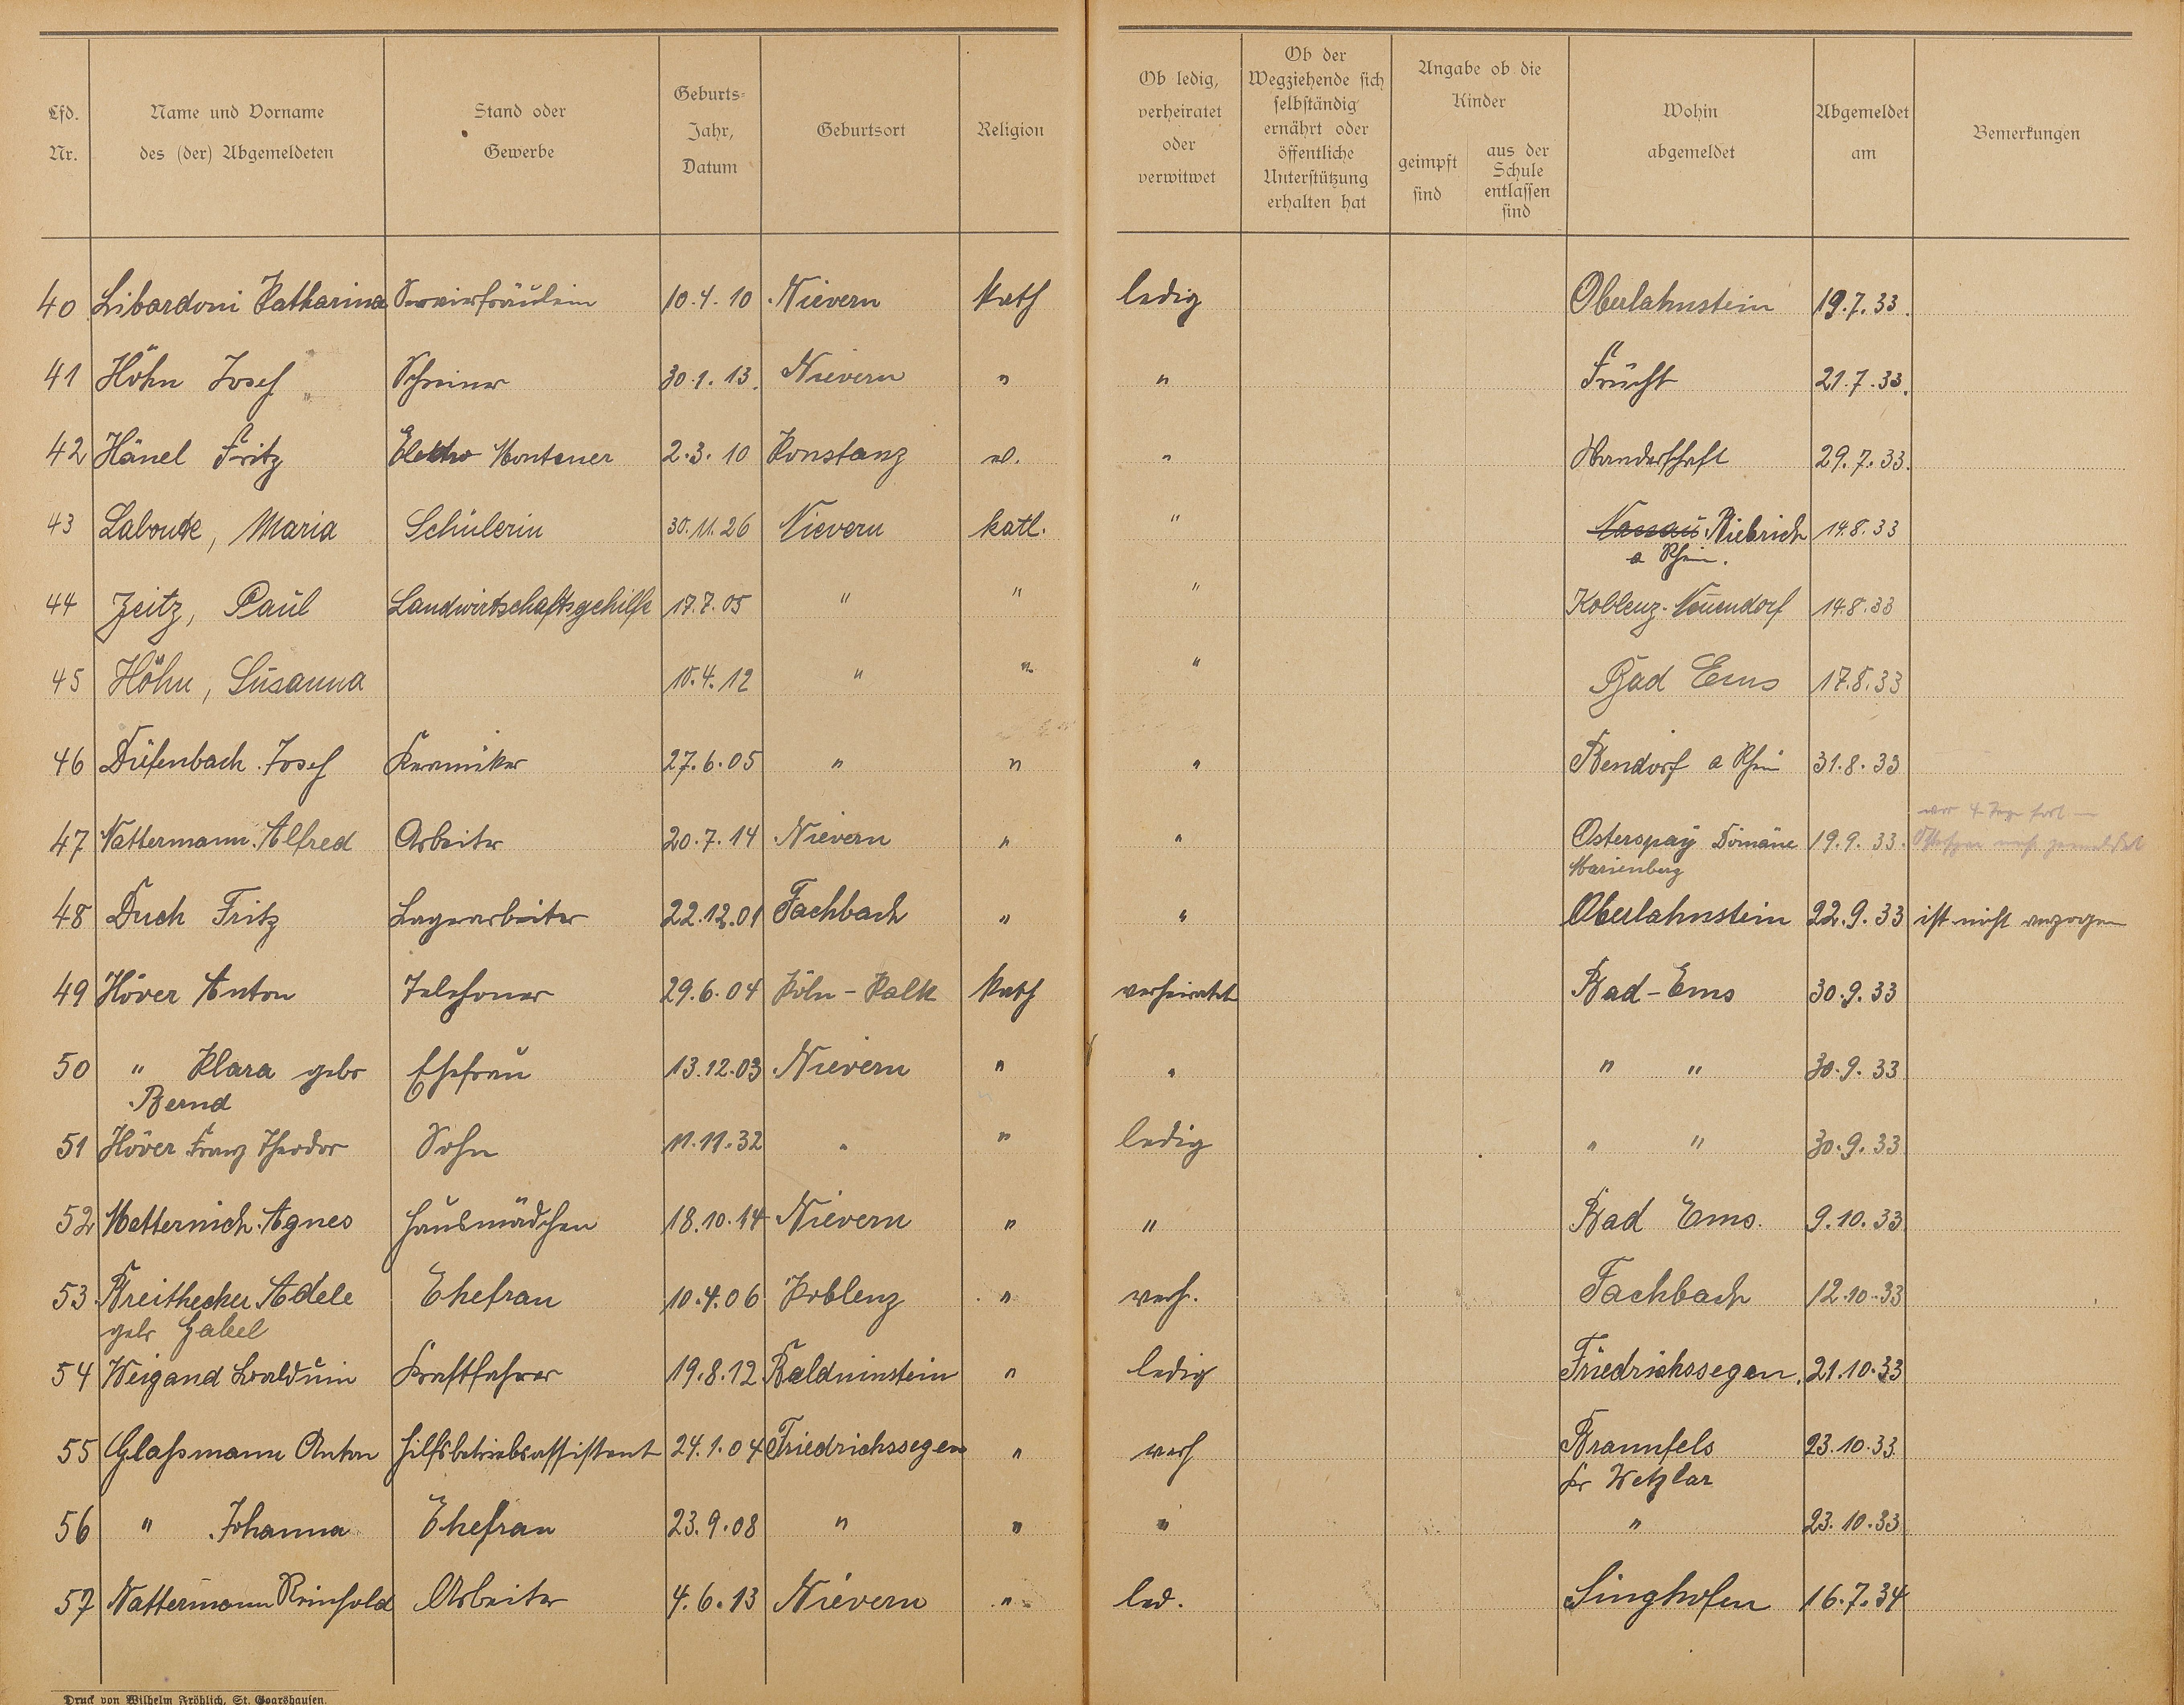 Lfd. Nr.
Name und Vorname des (der) Abgemeldeten
Stand oder Gewerbe
Geburts- Jahr, Datum
Geburtsort
Religion
Ob ledig, verheiratet oder verwitwet
Ob der Wegziehende sich selbständig ernährt oder öffentliche Unterstützung erhalten hat
Angabe ob die Kinder
geimpft sind
aus der Schule entlassen sind
Wohin abgemeldet
Abgemeldet am
Bemerkungen
40 Libardoni Katharina Servierfräulein 10.4.10 Nievern kath ledig Oberlahnstein 19.7.33.
41 Höhn Josef Schreiner 30.1.13. Nievern " " Frücht 21.7.33.
42 Hänel Fritz Elektro Monteuer 2.3.10 Konstanz " Wanderschaft 29.7.33.
43 Labonte, Maria Schülerin 30.11.26 Nievern kath. " Nassau Biebrich 14.8.33
a Rhein.
44 Zeitz, Paul Landwirtschaftsgehilfe 17.7.05 " " " Koblenz-Neuendorf 14.8.33
45 Höhn, Susanna 10.4.12 " " " Bad Ems 17.8.33
46 Diefenbach Josef Keramiker 27.6.05 " " " Bendorf a Rhein 31.8.33
47 Nattermann Alfred Arbeiter 20.7.14 Nievern " " Osterspay Domäne 19.9.33. war 4 Tage fort
Marienberg nicht gemeldet
48 Duch Fritz Lagerarbeiter 22.12.01 Fachbach " " Oberlahnstein 22.9.33 ist nicht verzogen
49 Höver Anton Telefoner 29.6.04 Köln-Kalk kath verheiratet Bad-Ems 30.9.33
50 " Klara gebr 13.12.03 Ehefrau Nievern " " " " 30.9.33
Bernd
51 Höver Franz Theodor Sohn 11.11.32 " " ledig " " 30.9.33
52 Metternich Agnes Hausmädchen 18.10.14 Nievern " " Bad Ems. 9.10.33
53 Breithecker Adele Ehefrau 10.4.06 Koblenz " verh. Fachbach 12.10.33
gebr Gabel
54 Weigand Balduin Kraftfahrer 19.8.12 Balduinstein " ledig Friedrichssegen. 21.10.33
55 Glaßmann Anton Hilfsbetriebsassistent 24.1.04 Friedrichssegen " verh Braunfels 23.10.33
Kr Wetzlar
56 " Johanna Ehefrau 23.9.08 " " " " 23.10.33
57 Nattermann Reinhold Arbeiter 4.6.13 Nievern " led. Singhofen 16.7.34
Druck von Wilhelm Fröhlich, St. Goarshausen.